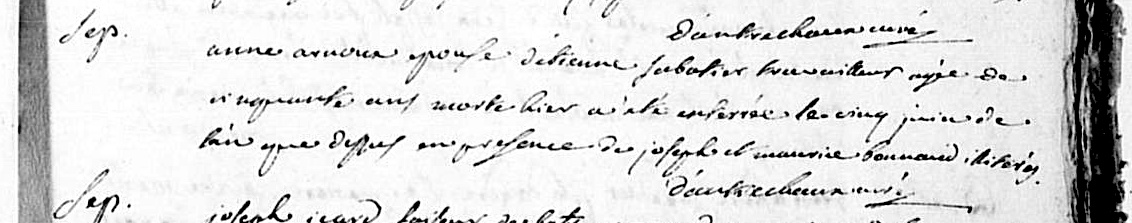 Dantrechaux curé
Sep. anne arnoux epouse d'étienne sabatier travailleur agée de
cinquante ans morte hier a été enterrée le cinq juin de
l'an que dessus en presence de joseph et maurice bonnaud illiterés.
Dantrechaux curé
Sep. joseph icard